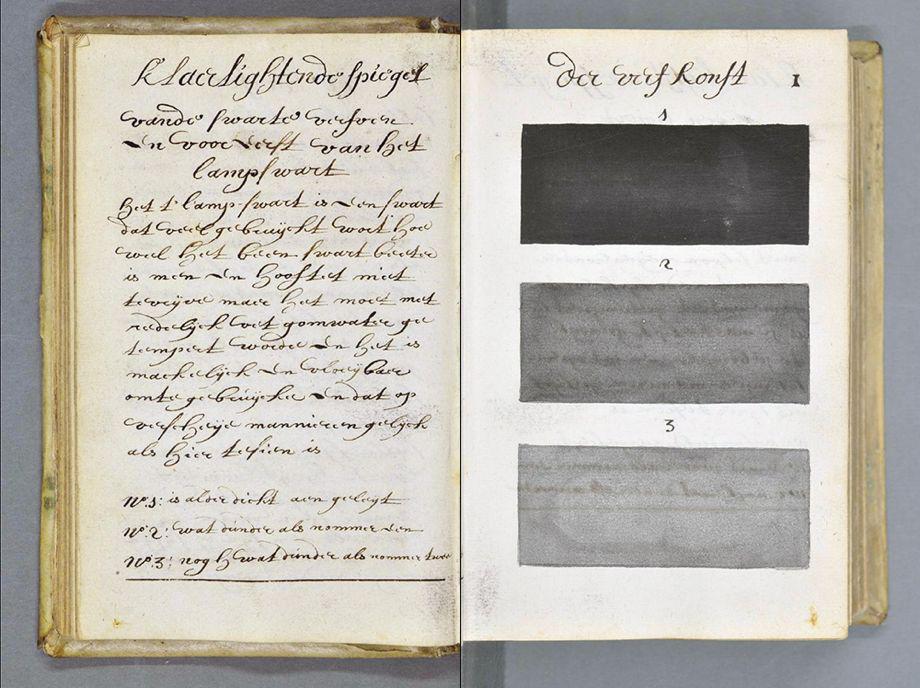 klaerlightende spiegel
vande swarte verfven
en voor eerst van het
lampswart
het t' lamp-swart is een swart
dat veel gebruyckt wort hoe
wel het been swart beeter
is men en hooftet niet
te vrijve maer het moet met
redelyck vet gomwater ge
tempert worde en het is
mackelyck en vloeybaer
omte gebruycke en dat op
verscheije mannieren gelyck
als hier tesien is
No 1: is alder dickt aen geleijt
No 2: wat dunder als nommer een
No 3: nogh wat dunder als nommer twee
der verfkonst 1
1
2
3